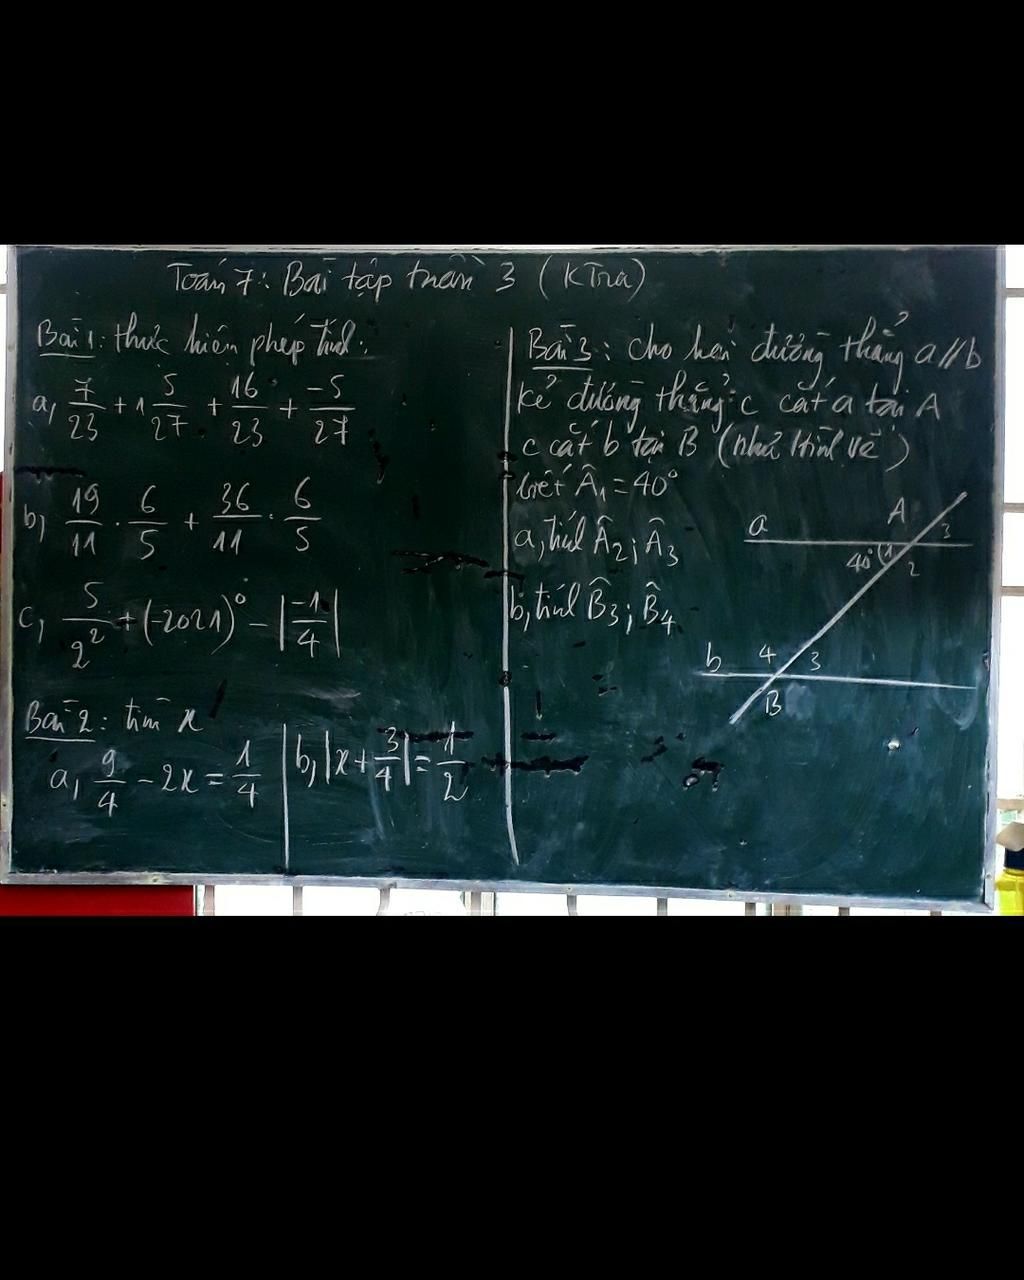 Toán 7: Bài tập tuần 3 (KTra)
Bài 1: thực hiện phép tính:
a, 7/23 + 1 5/27 + 16/23 + -5/27
b, 19/11 . 6/5 + 36/11 . 6/5
c, 5/2² + (-2021)⁰ - |-1/4|
Bài 2: tìm x
a, 9/4 - 2x = 1/4
b, |x + 3/4| = 1/2
Bài 3: cho hai đường thẳng a // b
kẻ đường thẳng c cắt a tại A
c cắt b tại B (như hình vẽ)
biết Â1 = 40°
a, tính Â2; Â3
b, tính B̂3; B̂4
a A 3
40° 1 2
b 4 3
B